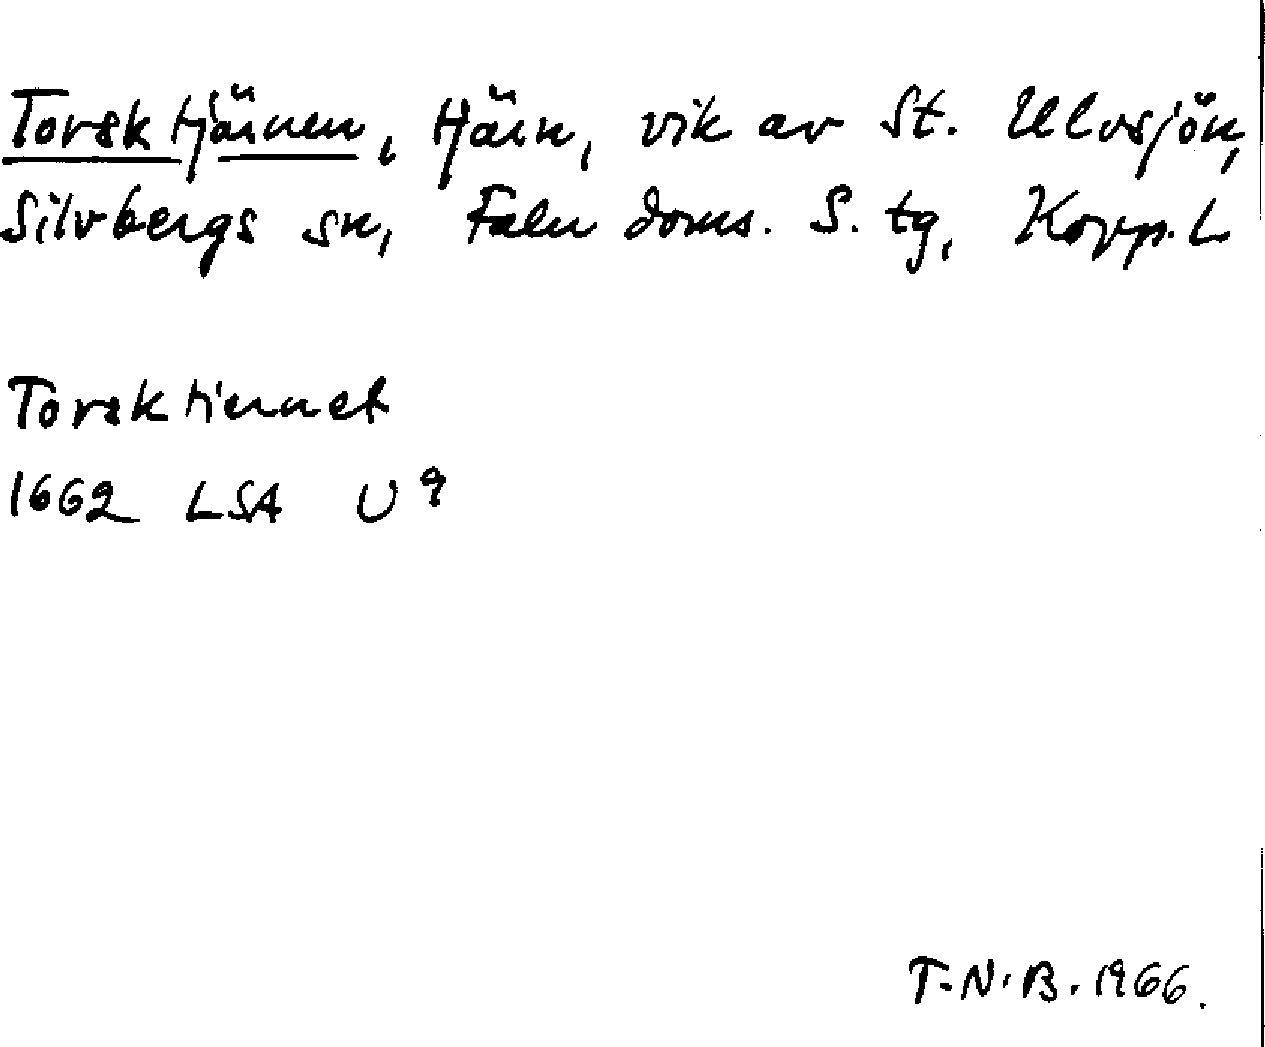 Torsktjärnen, tjärn, vik av St. Ulvsjön,
Silvbergs sn, Falu doms. S. tg, Kopp. L
Torsktiernet
1662 LSA U 9
T.N.B. 1966.